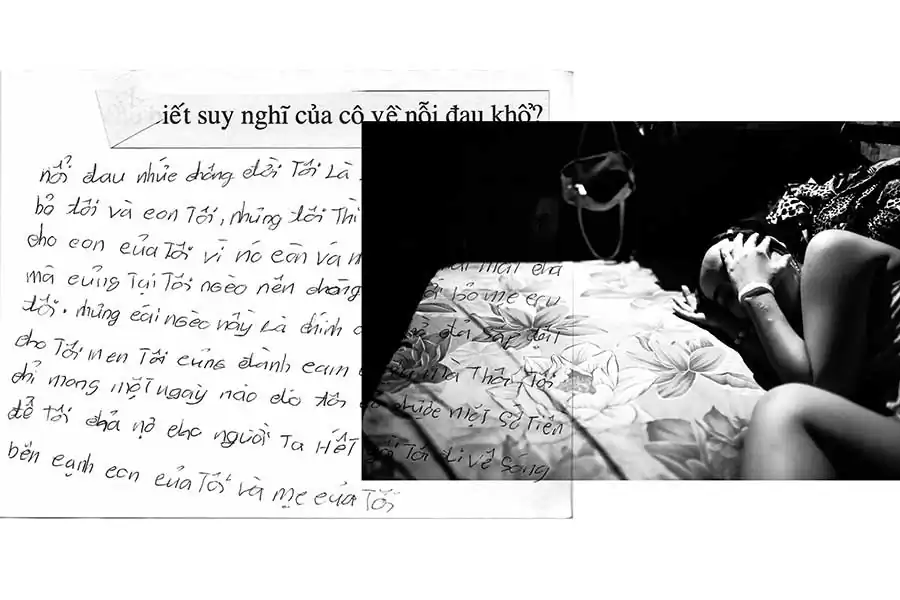 iết suy nghĩ của cô về nỗi đau khổ?
nổi đau nhứe chông đời Tôi Là
bỏ tôi và con Tôi, nhưng tôi Thì
cho con của Tôi vì nó còn mặt cha
mà củng Tại Tôi ngèo nên chồng bỏ mẹ
tôi. nhưng cái ngèo nầy Là chính đả sắp đặt
cho Tôi nen Tôi củng đành cam mà Thôi, Tôi
chỉ mong một ngaỳ nào đó tôi được một Số Tiền
để Tôi chả nợ cho người Ta HếT Tôi đi về Sống
bên cạnh con của Tôi và mẹ của Tôi